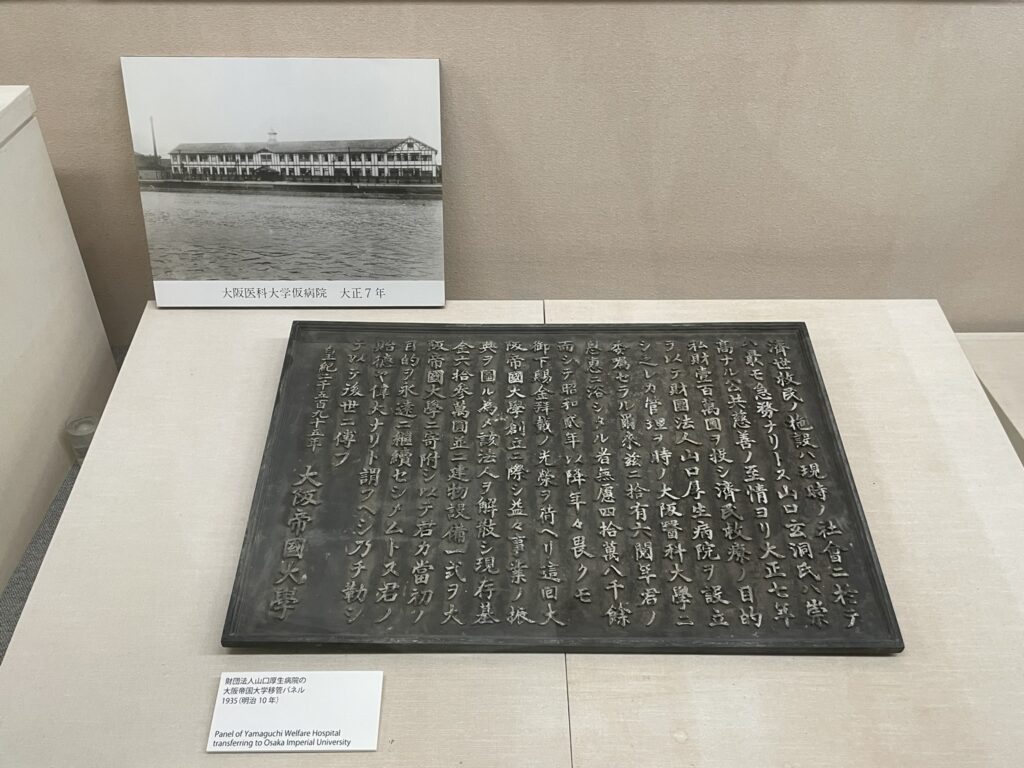 大阪医科大学仮病院　大正7年
濟世救民ノ施設ハ現時ノ社會ニ於テ
ハ最モ急務ナリトス山口玄洞氏ハ崇
高ナル公共慈善ノ至情ヨリ大正七年
私財壹百萬圓ヲ投シ濟民救療ノ目的
ヲ以テ財團法人山口厚生病院ヲ設立
シ之レカ管理ヲ時ノ大阪醫科大學ニ
委セラル爾來茲ニ拾有六閲年君ノ
恩惠ニ浴シタル者無慮四拾萬八千餘
而シテ昭和貳年以降年々畏クモ
御下賜金拜戴ノ光榮ヲ荷ヘリ這回大
阪帝國大學創立ニ際シ益々事業ノ振
興ヲ圖ル為メ該法人ヲ解散シ現存基
金六拾參萬圓並ニ建物設備一式ヲ大
阪帝國大學ニ寄附シ以テ君カ當初ノ
目的ヲ永遠ニ繼續セシメムトス君ノ
貽德ヤ偉大ナリト謂フヘシ乃チ勒シ
テ以テ後世ニ傳フ
皇紀二千五百九十五年
大阪帝國大學
財団法人山口厚生病院の
大阪帝国大学移管パネル
1935（明治 10 年）
Panel of Yamaguchi Welfare Hospital
transferring to Osaka Imperial University